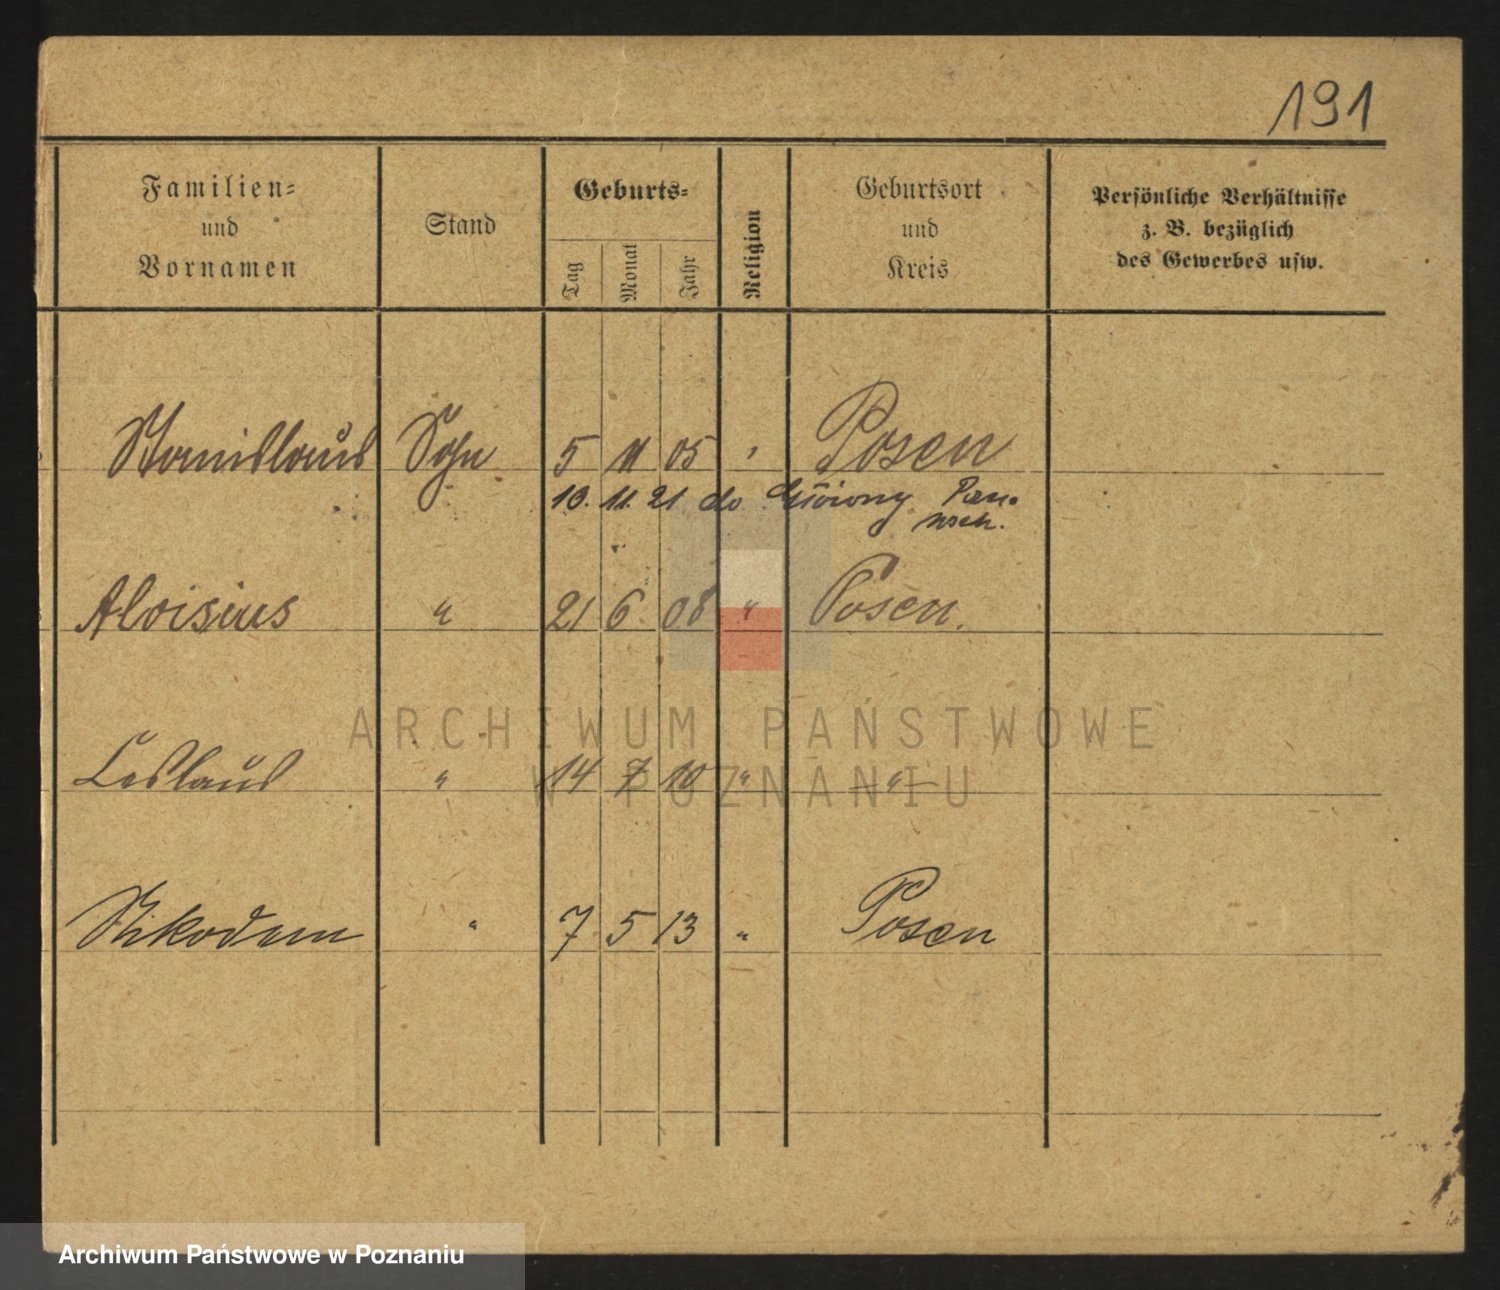 191
Familien=
und
Vornamen
Stand
Geburts=
Tag
Monat
Jahr
Religion
Geburtsort
und
Kreis
Persönliche Verhältnisse
z. B. bezüglich
des Gewerbes usw.
Stanislaus Sohn 5 11 05 " Posen
10. 11. 21 do
Aloisius " 21 6 08 " Posen.
Ceslaus " 14 7 10 " — " —
Nikodem " 7 5 13 " Posen
ARCHIWUM PAŃSTWOWE
W POZNANIU
Archiwum Państwowe w Poznaniu